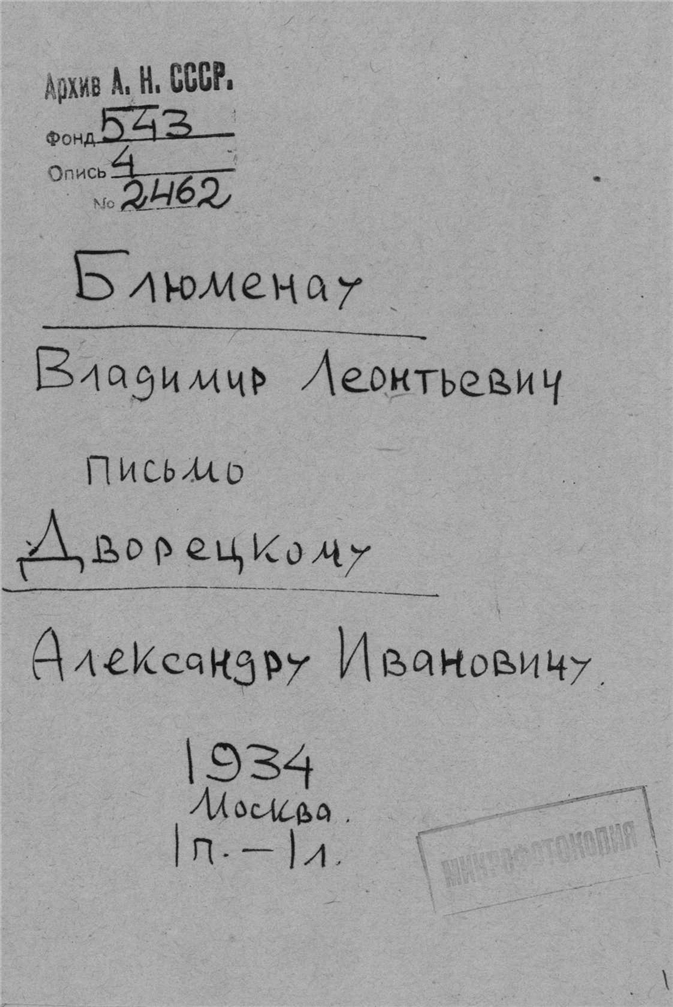 Архив А. Н. СССР.
Фонд 543
Опись 4
№ 2462
Блюменау
Владимир Леонтьевич
письмо
Дворецкому
Александру Ивановичу.
1934
Москва.
1 п. – 1 л.
МИКРОФОТОКОПИЯ
1